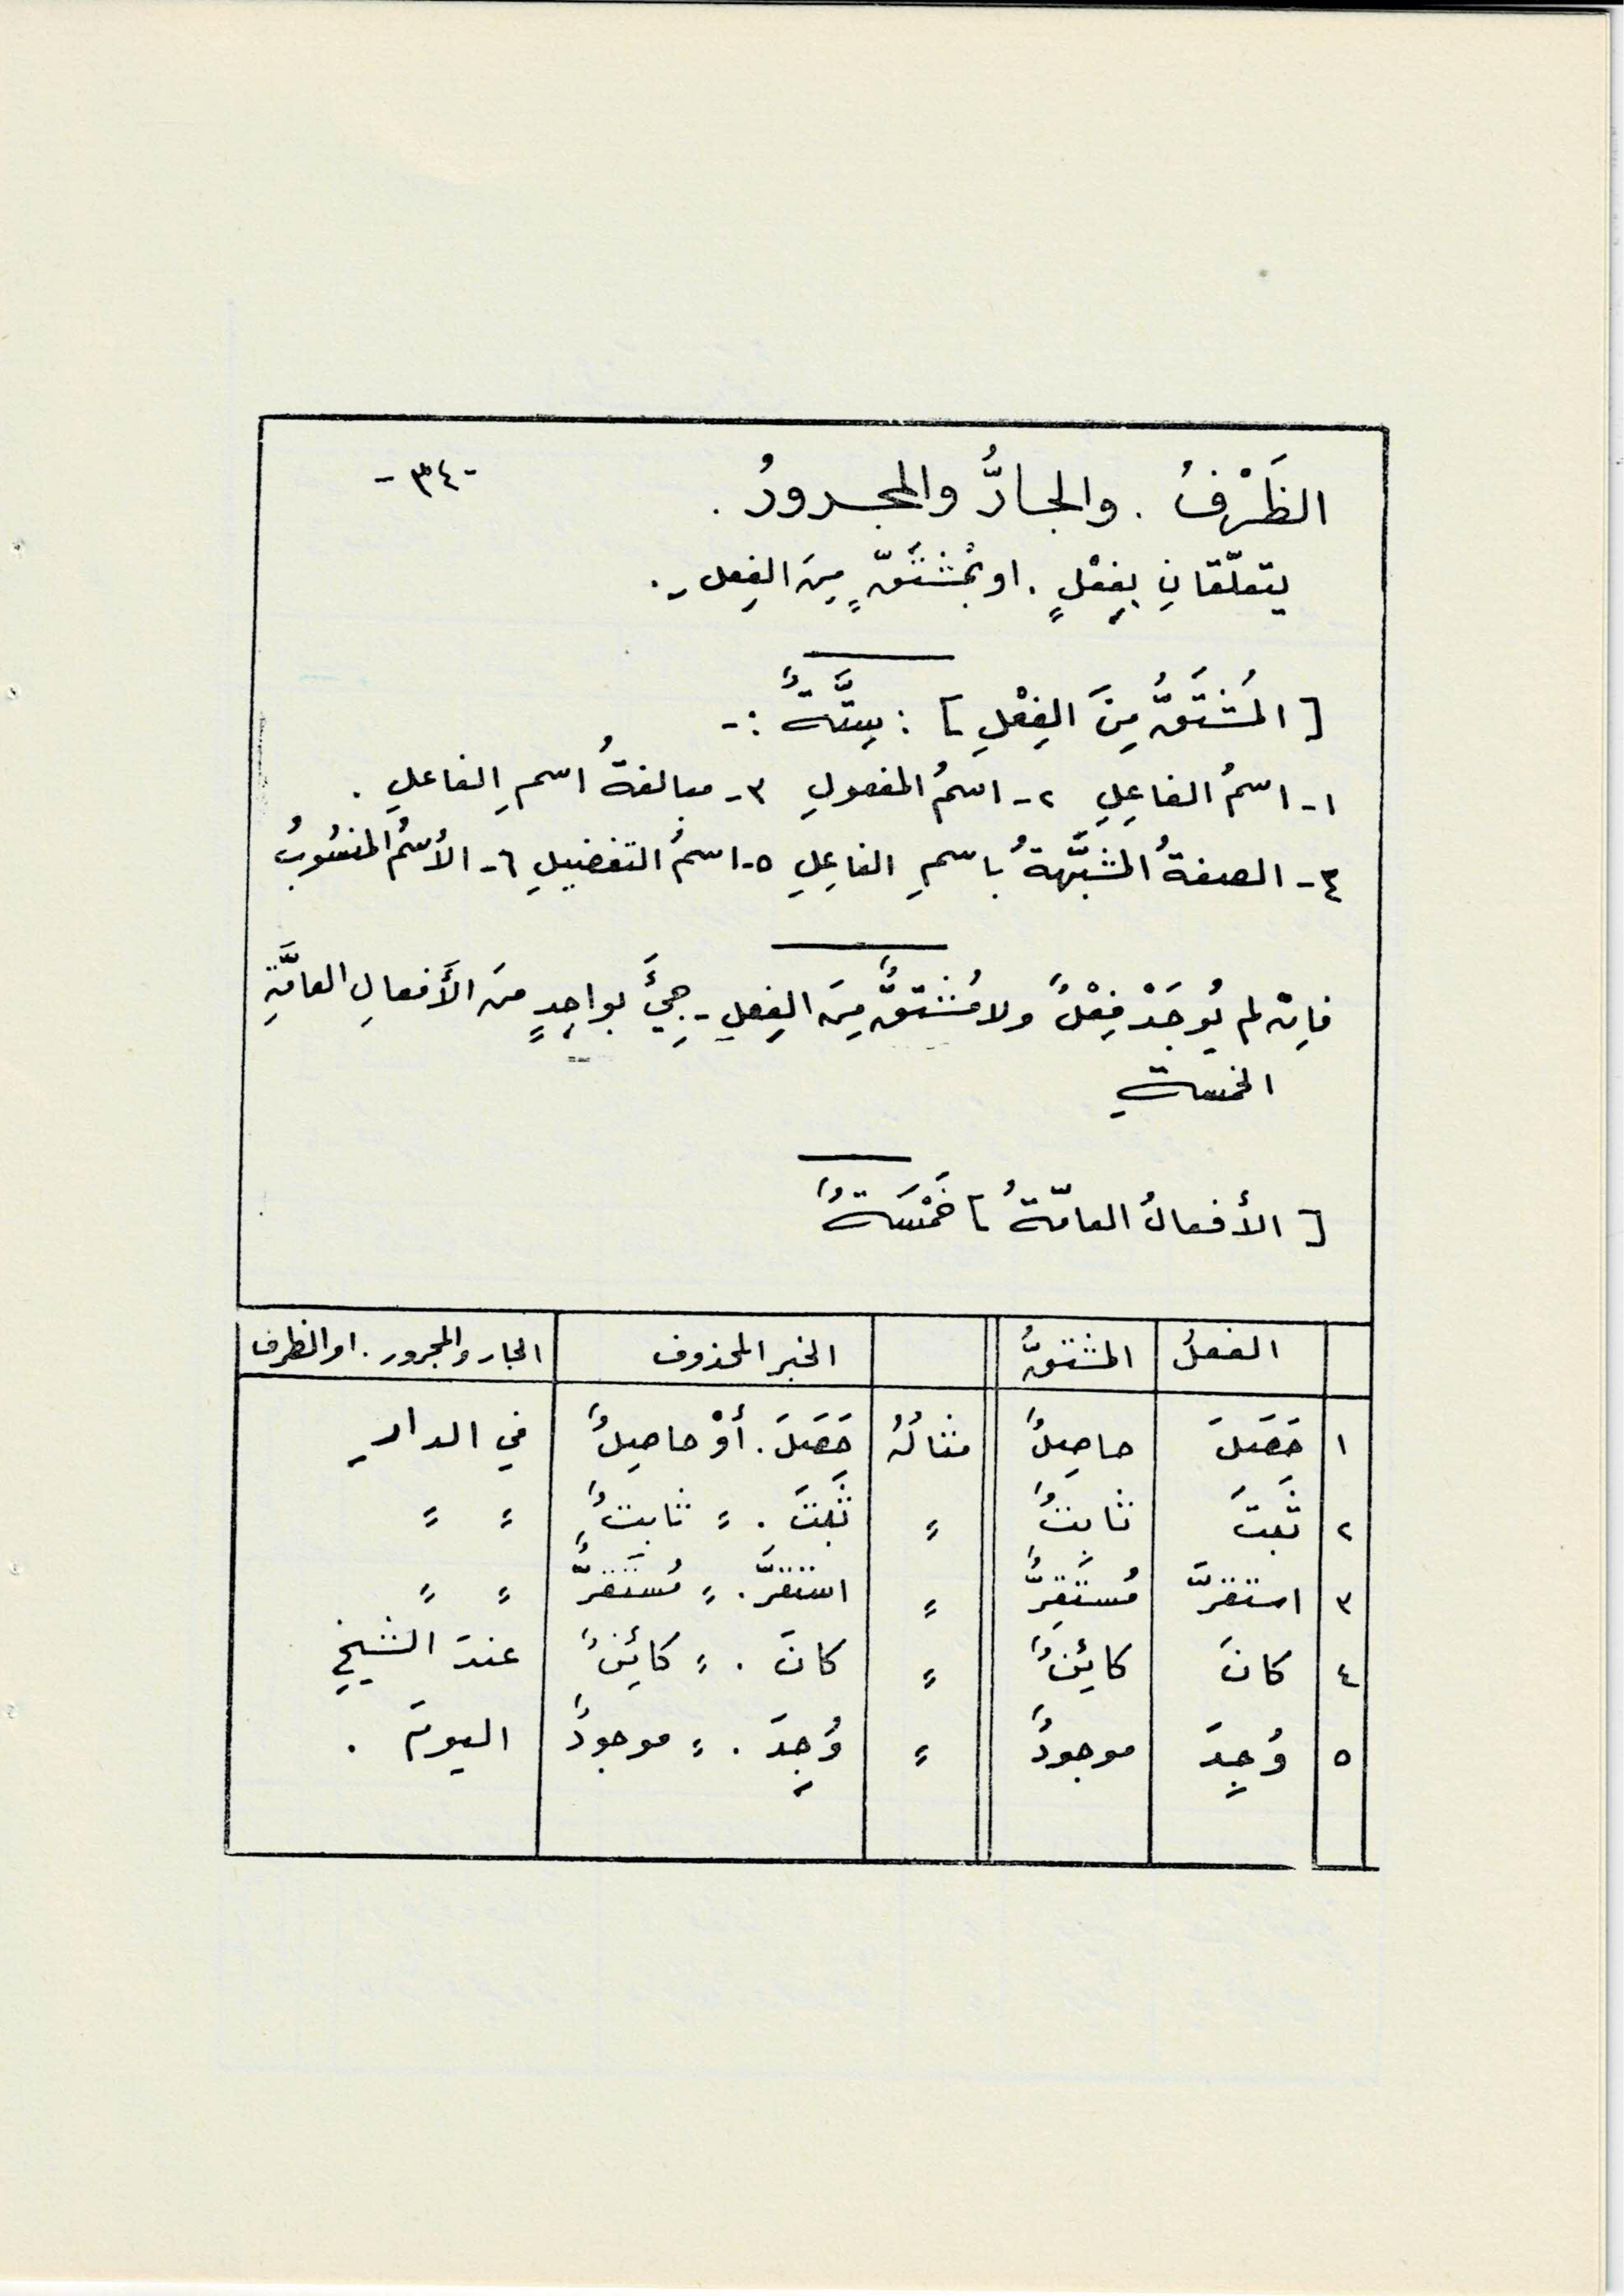 الظَرْفُ . والجارُّ والمجرورُ . -٣٤-
يتعلّقانِ بِفِعْلٍ . او بمُشْتَقٍّ مِنَ الفِعلِ .
[ المُشْتَقُّ مِنَ الفِعْلِ ] : سِتَّةٌ :-
١- اسمُ الفاعِلِ ٢- اسمُ المفعولِ ٣- مبالغةُ اسمِ الفاعلِ .
٤- الصفةُ المشبَّهةُ باسمِ الفاعِلِ ٥- اسمُ التفضيلِ ٦- الأسْمُ المنسُوبُ
فإنْ لم يُوجَدْ فِعْلٌ ولا مُشْتَقٌّ مِنَ الفِعلِ - جِيْءَ بواحِدٍ منَ الأَفعالِ العامَّةِ
الخمسةِ
[ الأفعالُ العامّةُ ] خَمْسَةٌ
الفعلُ المشتقُّ الخبر المحذوف الجار والمجرور . او الظرف
١ حَصَلَ حاصِلٌ مثالُهُ حَصَلَ . أوْ حاصِلٌ في الدارِ
٢ ثَبتَ ثابتٌ " ثَبتَ . " ثابتٌ " "
٣ استقرَّ مُستَقِرٌّ " استقرَّ . " مُستَقرٌّ " "
٤ كانَ كائِنٌ " كانَ . " كائِنٌ عندَ الشيخِ
٥ وُجِدَ موجودٌ " وُجِدَ . " موجودٌ اليومَ .